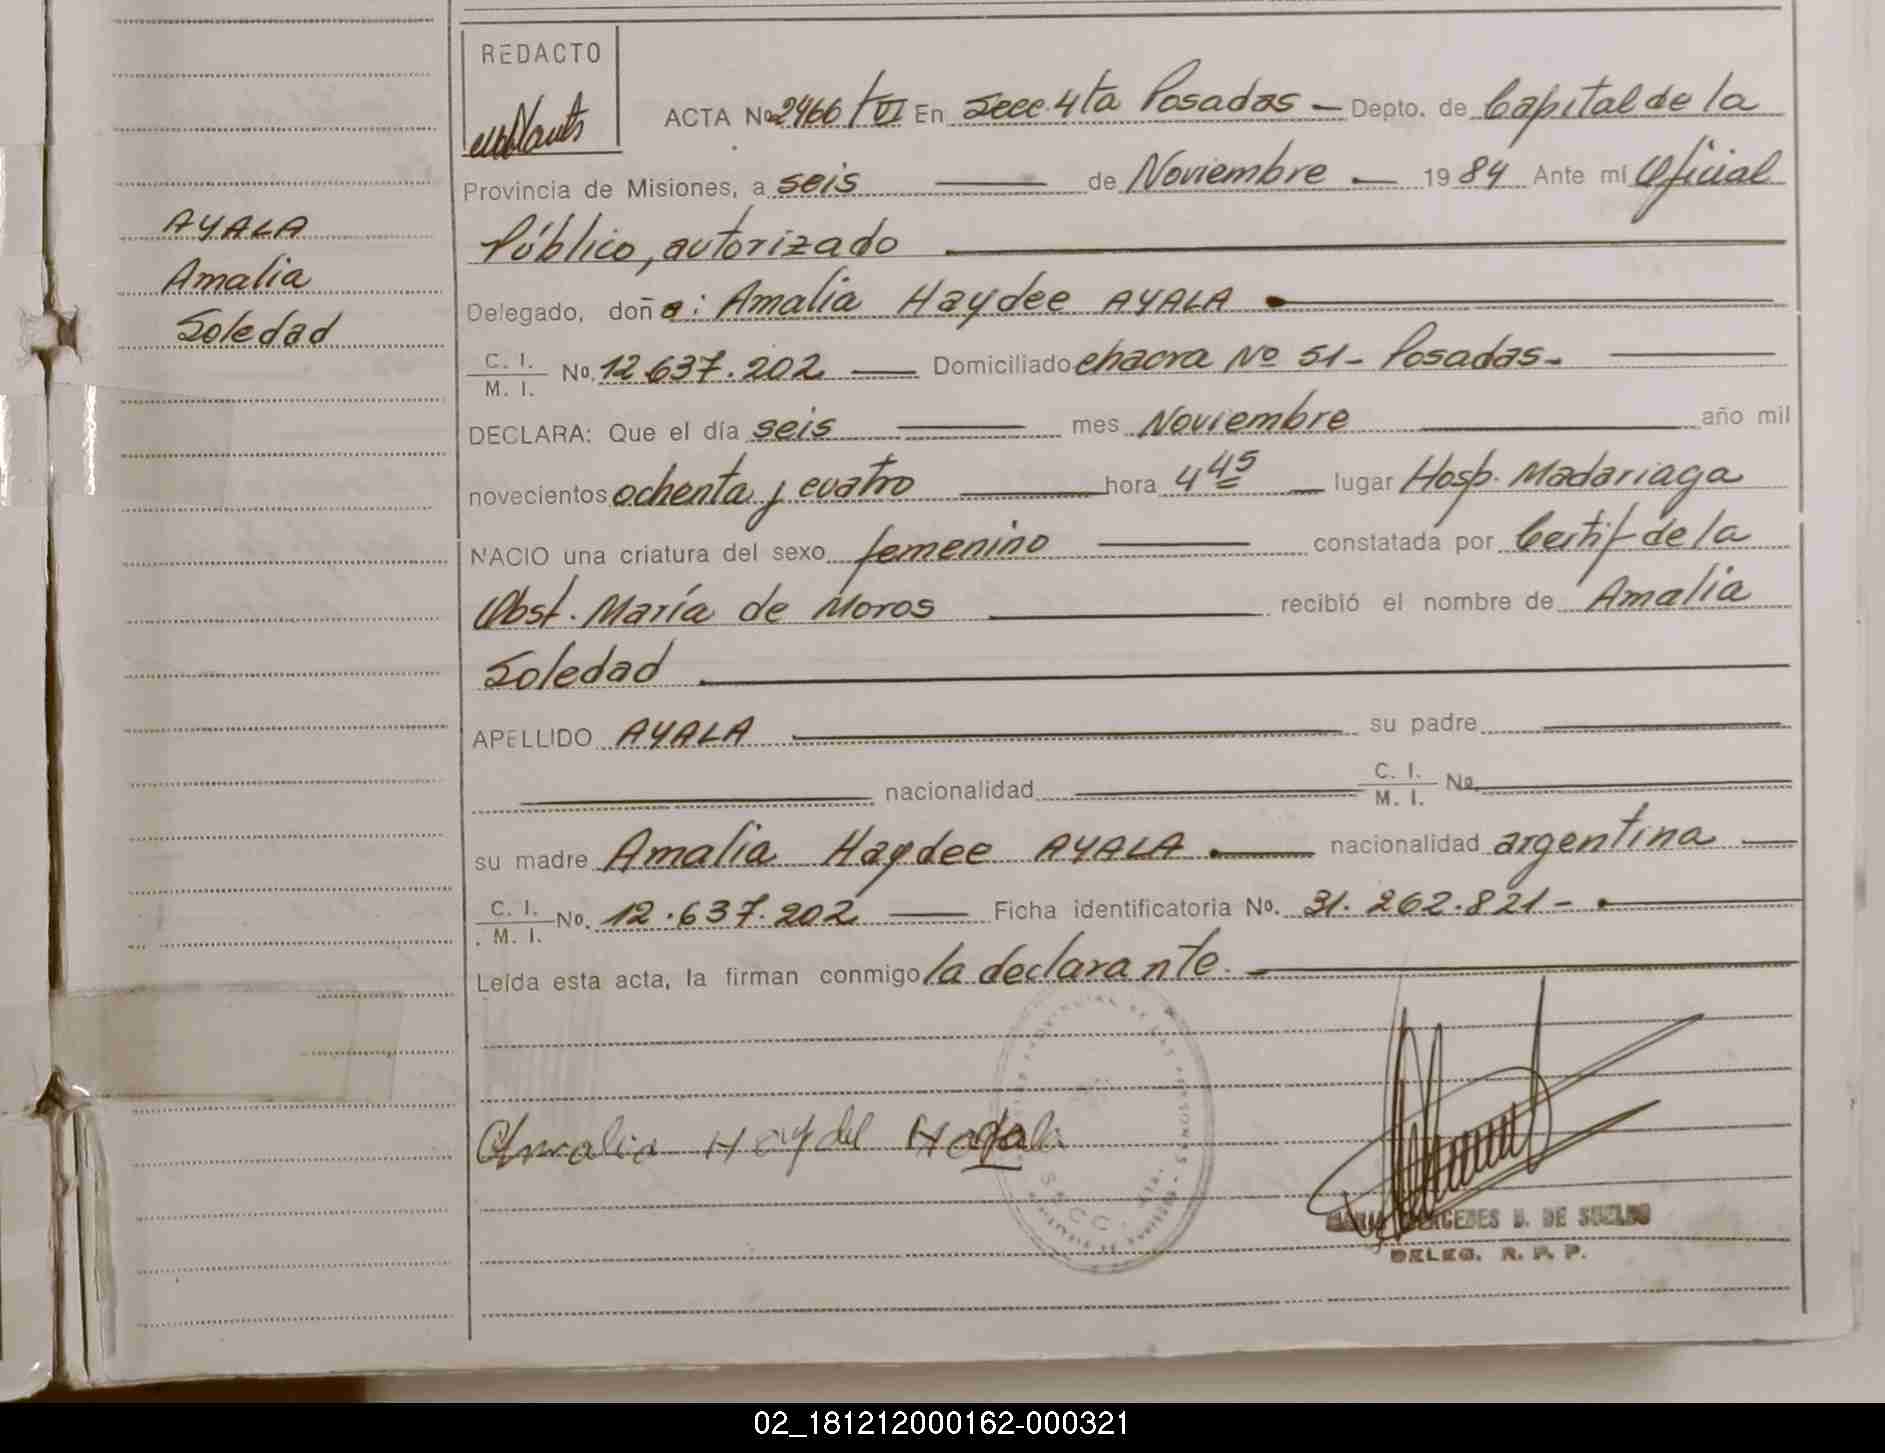 REDACTO
ACTA No 2466/VI En Secc. 4ta Posadas - Depto. de Capital de la
Provincia de Misiones, a seis de Noviembre - 1984 Ante mi Oficial
Público, autorizado
AYALA
Amalia
Soledad
Delegado, doña: Amalia Haydee AYALA
C. I. / M. I. No. 12.637.202 Domiciliado chacra No 51 - Posadas -
DECLARA: Que el día seis mes Noviembre año mil
novecientos ochenta y cuatro hora 4 45 lugar Hosp. Madariaga
NACIO una criatura del sexo femenino constatada por Certif de la
Obst. María de Moros recibió el nombre de Amalia
Soledad
APELLIDO AYALA su padre
nacionalidad C. I. / M. I. No.
su madre Amalia Haydee AYALA nacionalidad argentina
C. I. / M. I. No. 12.637.202 Ficha identificatoria No. 31.262.821-
Leída esta acta, la firman conmigo la declarante.
Amalia Haydee
MERCEDES D. DE
DELEG. R. P. P.
02_181212000162-000321